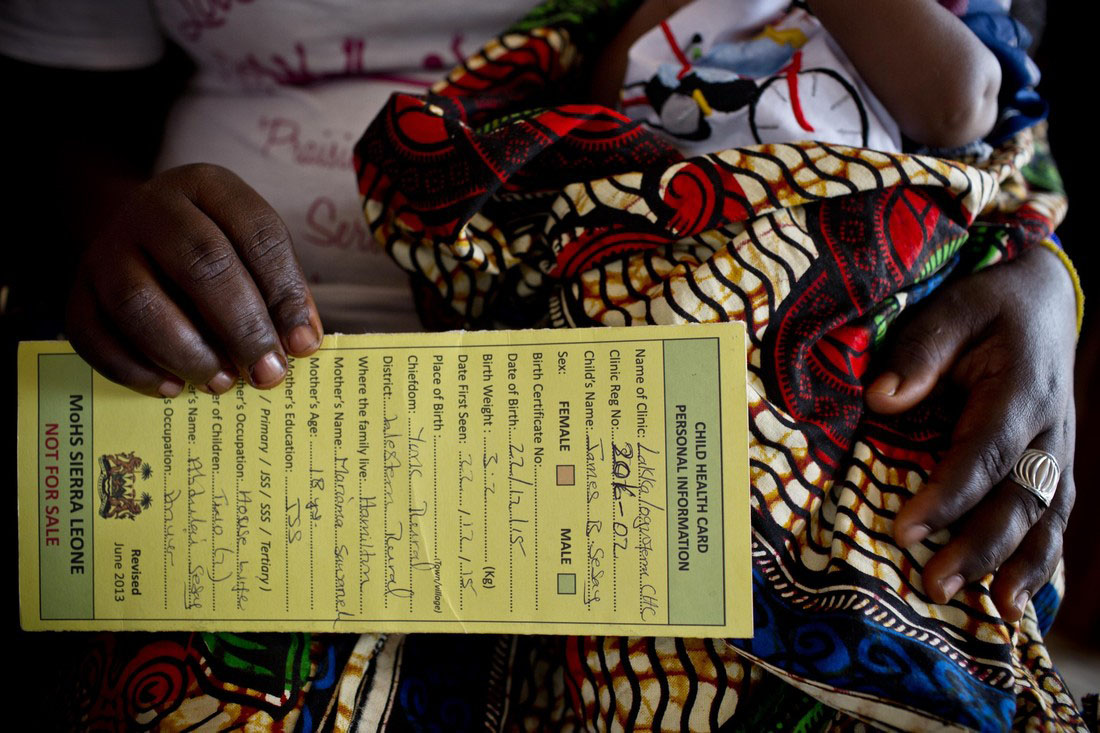 CHILD HEALTH CARD
PERSONAL INFORMATION
Name of Clinic: Lakka CHC
Clinic Reg No: 20K-02
Child's Name: James B. Sesay
Sex: FEMALE MALE
Birth Certificate No:
Date of Birth: 22/12/15
Birth Weight: 3.2 (Kg)
Date First Seen: 22/12/15
Place of Birth: (Town/village)
Chiefdom: York Rural
District: Western Rural
Where the family live: Hamilton
Mother's Name: Mariama
Mother's Age: 18 yrs
Mother's Education: JSS
/ Primary / JSS / SSS / Tertiary)
Occupation: House
of Children: Two (2)
Name: Abdulai Sesay
Occupation: Driver
Revised
June 2013
MoHS SIERRA LEONE
NOT FOR SALE